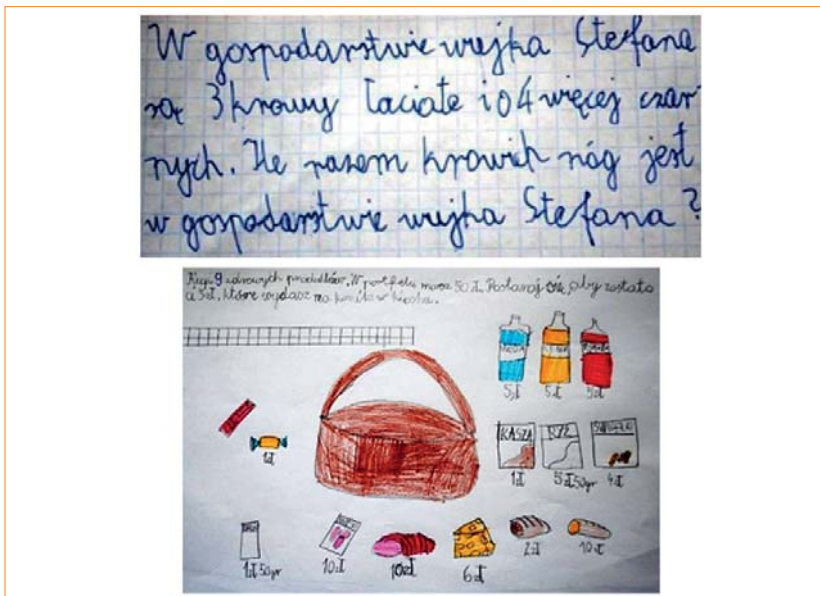 W gospodarstwie wujka Stefana
są 3 krowy łaciate i o 4 więcej czar
nych. Ile razem krowich nóg jest
w gospodarstwie wujka Stefana?
Kup 9 zdrowych produktów. W portfelu masz 50 zł. Postaraj się, aby zostało
ci 5 zł, które wydasz na
5 zł 5 zł 5 zł
1 zł
KASZA RYŻ
1 zł 5 zł 50 gr 4 zł
1 zł 50 gr 10 zł 10 zł 6 zł 2 zł 10 zł